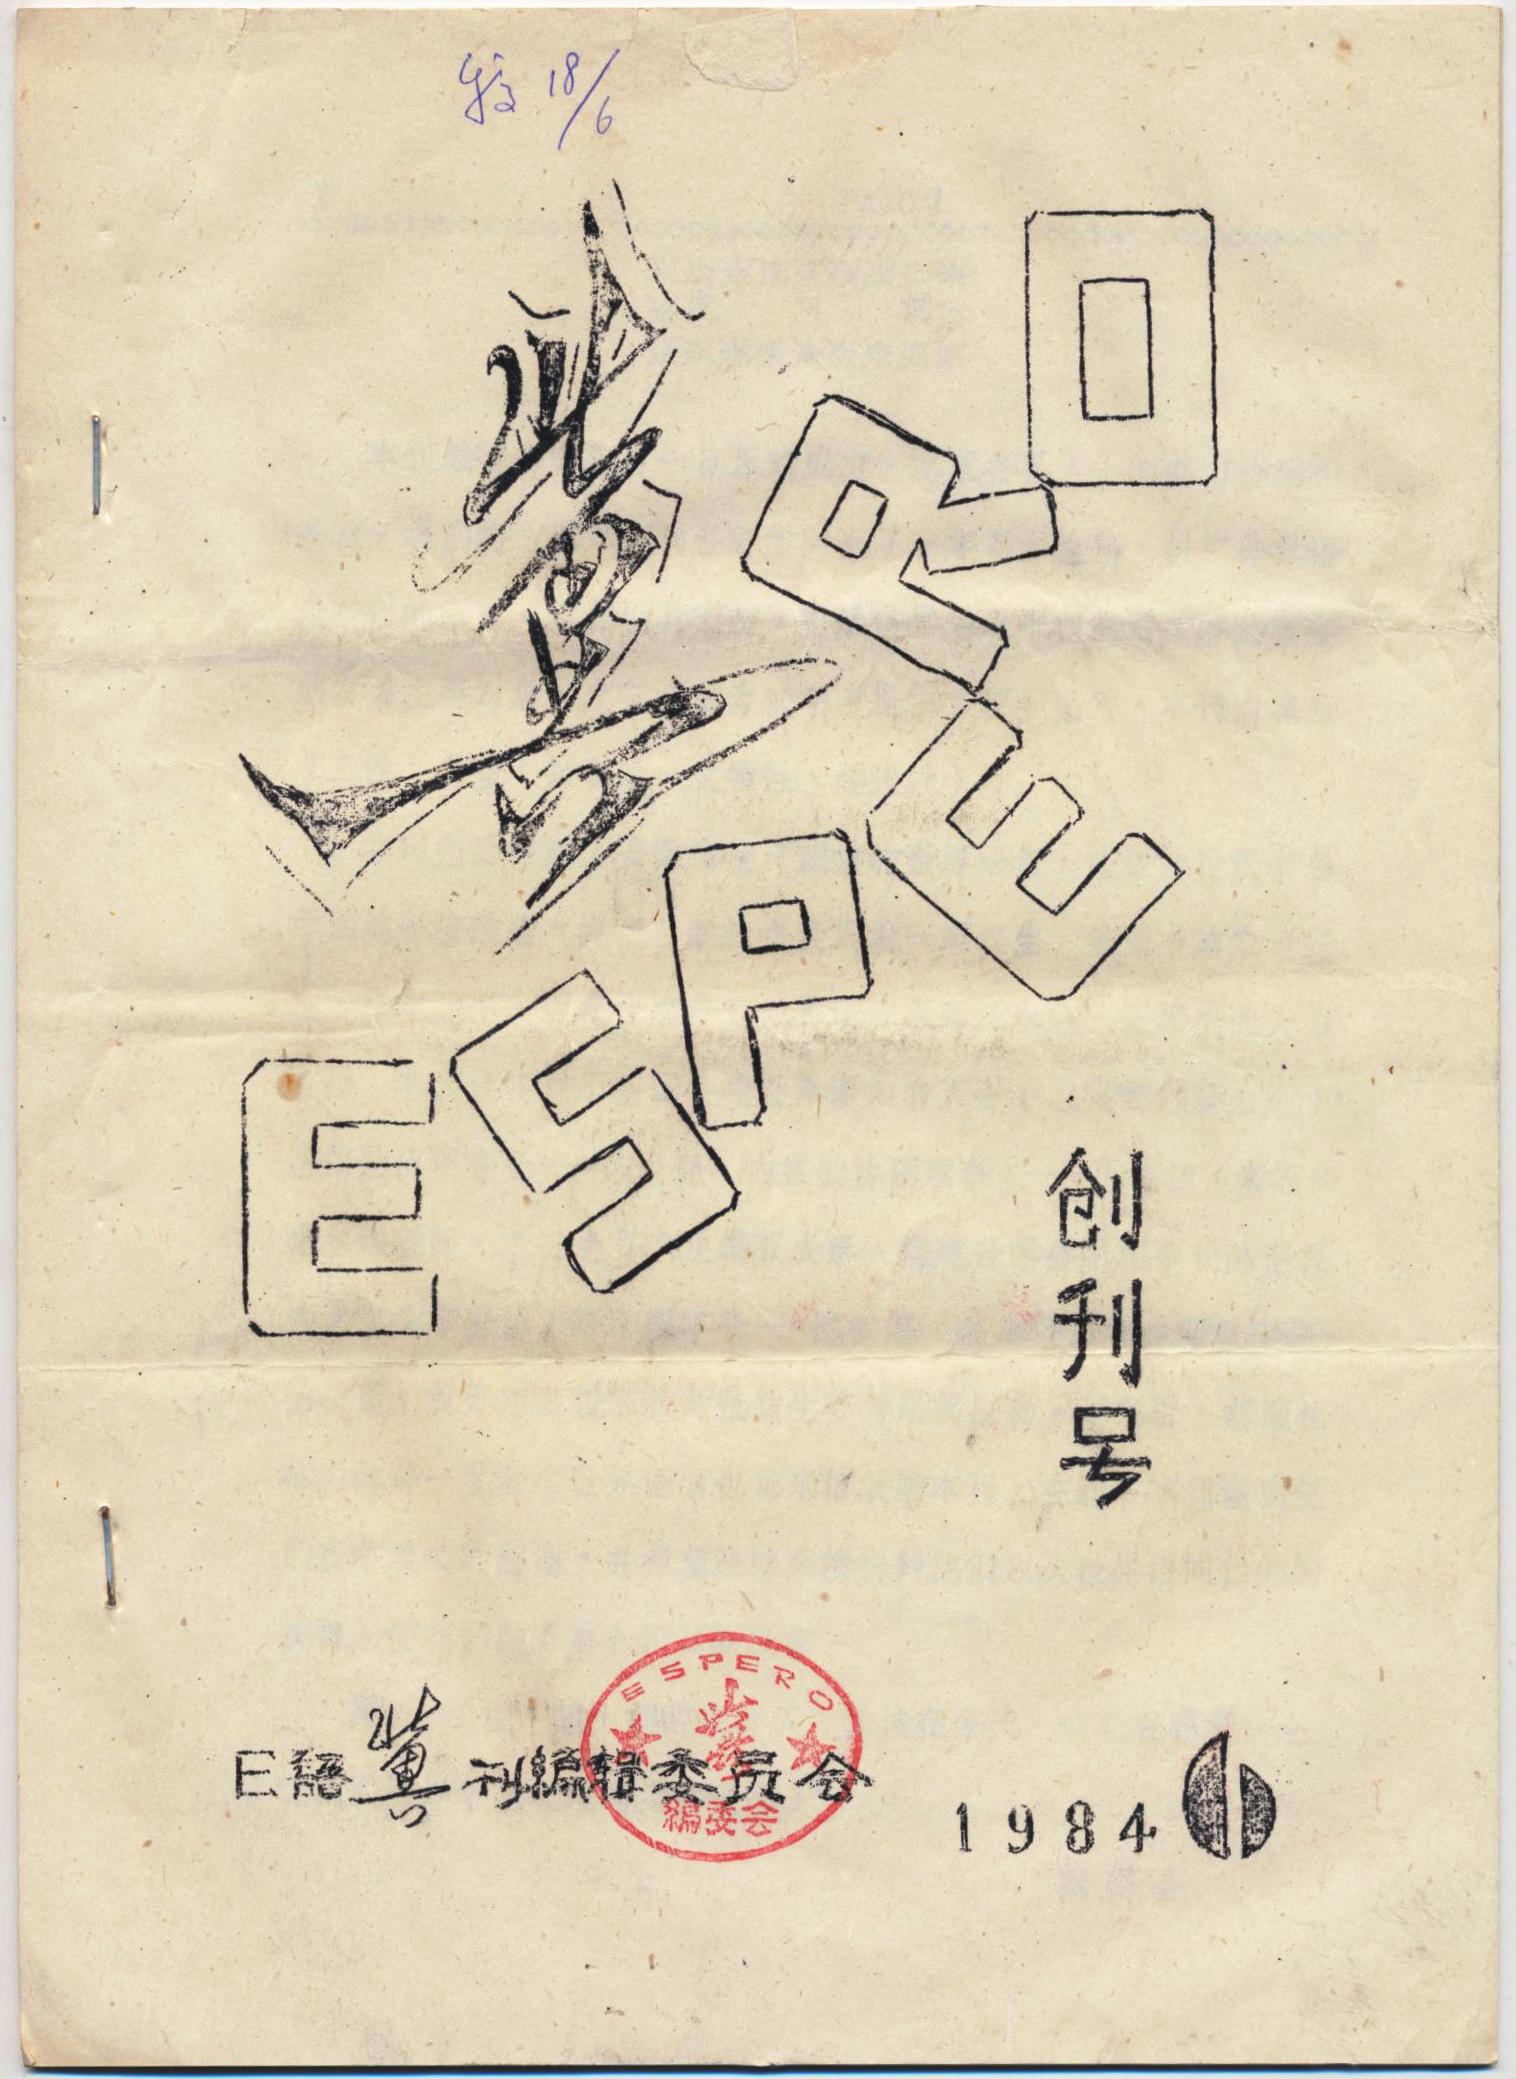 18/6
冀
ESPERO
创刊号
E語冀刊編輯委员会
ESPERO
冀
編委会
1984